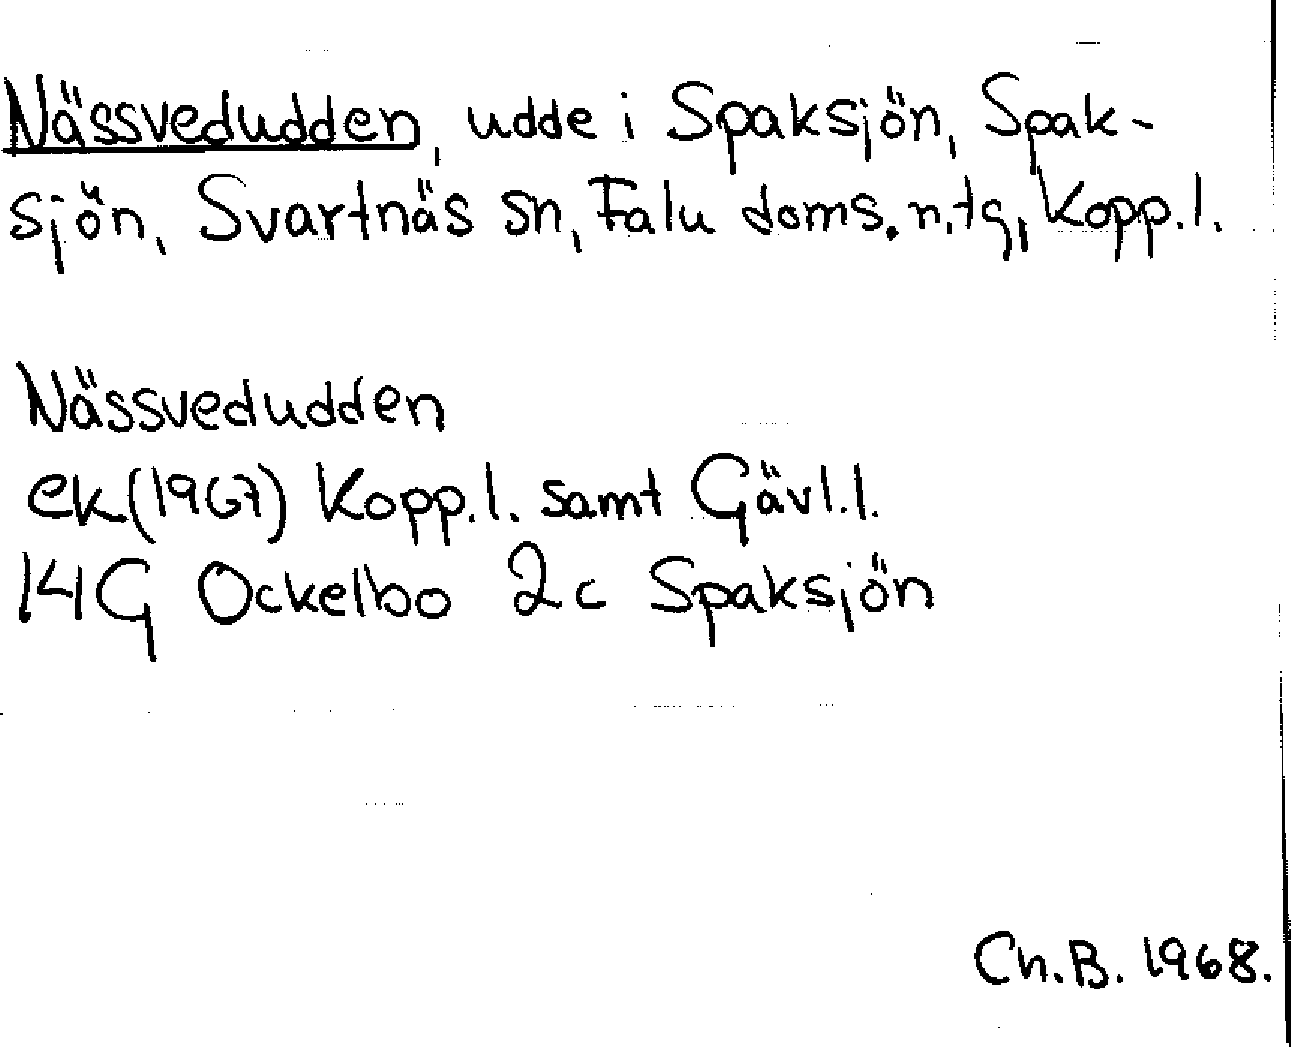 Nässvedudden, udde i Spaksjön, Spak-
sjön, Svartnäs sn, Falu doms. n. tg, Kopp.l.
Nässvedudden
ek(1967) Kopp.l. samt Gävl.l.
14G Ockelbo 2c Spaksjön
Ch.B. 1968.